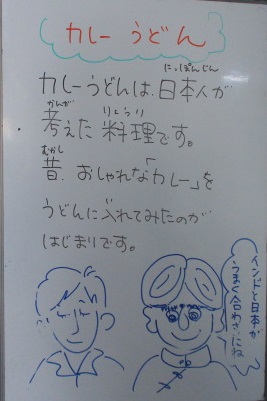 カレーうどん
にっぽんじん
カレーうどんは、日本人が
かんが りょうり
考えた料理です。
むかし
昔、おしゃれな「カレー」を
うどんに入れてみたのが
はじまりです。
インドと日本が
うまく合わさったね